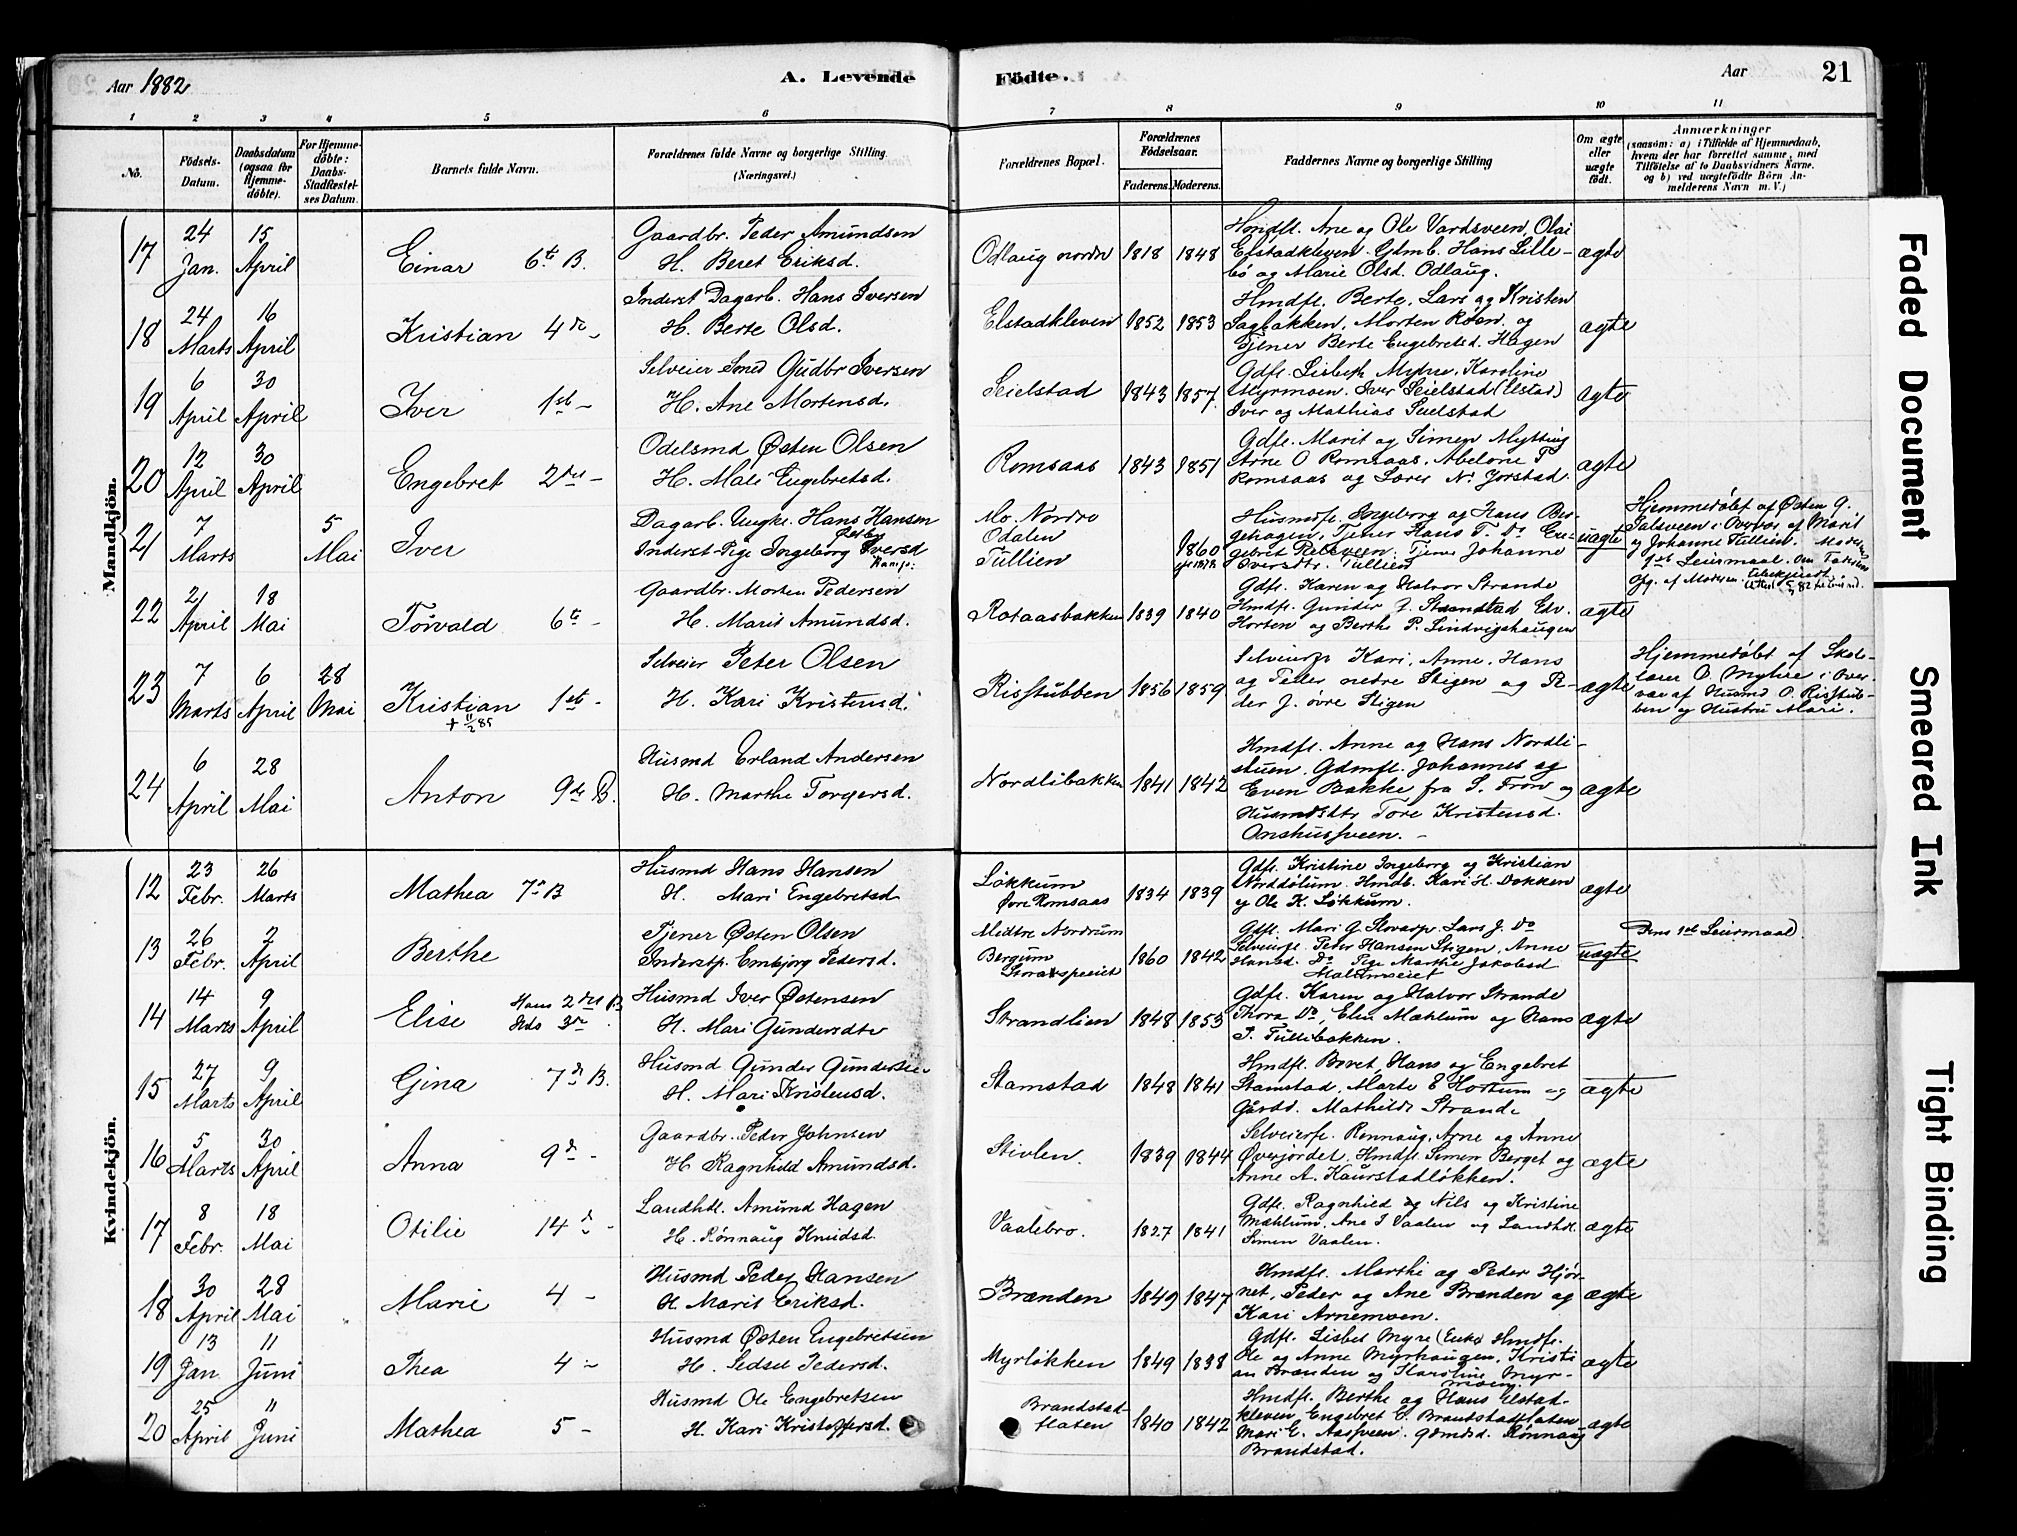 Aar 1882
A. Levende
Födte.
Aar
21
1 2 3 4 5 6 7 8 9 10 11
No.
Födsels-Datum.
Daabsdatum (ogsaa for Hjemme-döbte).
For Hjemme-döbte: Daabs-Stadfæstel-ses Datum.
Barnets fulde Navn.
Forældrenes fulde Navne og borgerlige Stilling. (Næringsvei.)
Forældrenes Bopæl.
Forældrenes Födselsaar.
Faderens. Moderens.
Faddernes Navne og borgerlige Stilling
Om ægte eller uægte födt.
Anmærkninger
(saasom: a) i Tilfælde af Hjemmedaab, hvem der har forrettet samme, med Tilföielse af to Daabsvidners Navne. og b) ved uægtefödte Börn An-melderens Navn m. V.)
Mandkjön.
17 24 Jan. 15 April Einar 6te B.
Gaardbr. Peder Amundsen
H. Beret Eriksd.
Odlaug nordre 1818 1848
Hmdfl. Ane og Ole Vardsveen, Olai
Elstadkleven. Gdmb. Hans Lille-
bö og Marie Olsd. Odlaug.
ægte
18 24 Marts 16 April Kristian 4de -
Inderst Dagarb. Hans Iversen
H. Berte Olsd.
Elstadkleven 1852 1853
Hmdfl. Berte, Lars og Kristen
Sagbakken, Morten Roen og
Tjener Berte Engebretsd. Hagen
ægte
19 6 April 30 April Iver 1ste -
Selveier Smed Gudbr Iversen
H. Ane Mortensd.
Seielstad 1843 1857
Gdfl. Lisbeth Myhre, Karoline
Myrmoen. Iver Seielstad (Elstad)
Iver og Mathias Seielstad
ægte
20 12 April 30 April Engebret 2det -
Odelsmd Østen Olsen
H. Mali Engebretsd.
Romsaas 1843 1851
Gdfl. Marit og Simen Mytting
Arne O Romsaas, Abelone T
Romsaas og Lars N. Jorstad.
ægte
21 7 Marts 5 Mai Iver
Dagarb. Ungk. Hans Hansen
Inderst-Pige Ingeborg Iversd
Mo Nordre
Odalen
Tullien
1860
Husmdfl. Ingeborg og Hans Ber-
gehagen, Tjener Hans T. Do En-
gebret Relsveen. Tjener Johanne
Iversdtr. Tullien
uægte
Hjemmedøbt af Østen G.
af Marit
og Johanne Tullien.
1ste Leiermaal.
22 21 April 18 Mai Torvald 6te -
Gaardbr. Morten Pedersen
H. Marit Amundsd.
Rotaasbakken 1839 1840
Gdfl. Karen og Halvor Strande
Hmdfl. Gunder J. Stamstad Edv.
Horten og Berthe P. Lindvigshaugen
ægte
23 7 Marts 6 April 28 Mai Kristian 1ste -
+ 11/2 85
Selveier Peter Olsen
H. Kari Kristensd.
Risstubben 1856 1859
Selveierfl Kari, Anne, Hans
og Peder nedre Stigen og Pe-
der J. øvre Stigen
ægte
Hjemmedøbt af Skole-
lærer O. Myhre i Over-
vær af Husmd O. Risstub-
ben og Hustru Mari.
24 6 April 28 Mai Anton 9de B.
Husmd Erland Andersen
H. Marthe Torgersd.
Nordlibakken 1841 1842
Hmdfl. Anne og Hans Nordli-
stuen. Gdmfl. Johannes og
Even Bakke fra S. Fron og
Husmdsdtr Tore Kristensd.
Onshussveen. -
ægte
Kvindekjön.
12 23 Febr. 26 Marts Mathea 7de B
Husmd Hans Hansen
H. Mari Engebretsd
Løkkum
Øvre Romsaas
1834 1839
Gdfl. Kristine Ingeborg og Kristian
Norddølum. Hmdb. Kari H. Dokken
og Ole K. Løkkum.
ægte
13 26 Febr. 2 April Berthe
Tjener Østen Olsen
Inderstp. Embjørg Pedersd.
Midtre Nordrum
Bergum
1860 1842
Gdfl. Mari G Storarp. Lars J. Do
Selveierfl. Peder Hansen Stigen, Anne
Hansd. Do Pige Marthe Jakobsd
uægte
Dens 1ste Leiermaal
14 14 Marts 9 April Elise Hans 2det B Hds 3de
Husmd Iver Østensen
H. Mari Gundersdtr
Strandlien 1848 1853
Gdfl. Karen og Halvor Strande
Thora Do, Elin Mæhlum og Hans
P. Tullibakken.
ægte
15 27 Marts 9 April Gina 7de B.
Husmd Gunder Gundersen
H. Mari Kristensd.
Stamstad 1848 1841
Hmdfl. Beret, Hans og Engebret
Stamstad, Marte E Hortum og
Mathilde Strande
ægte
16 5 Marts 30 April Anna 9de -
Gaardbr. Peder Johnsen
H Ragnhild Amundsd.
Stivlen. 1839 1844
Selveierfl. Rønnaug, Arne og Anne
Øverjordet, Hmdfl. Simen Berget og
Anne A. Kaurstadløkken.
ægte
17 8 Febr. 18 Mai Otilie 14de -
Landhdl. Amund Hagen
H. Rønnaug Knudsd.
Vaalebro. 1827 1841
Gdfl. Ragnhild og Nils og Kristine
Mæhlum. Ane I Vaalen og Landhdl.
Simen Vaalen.
ægte
18 30 April 28 Mai Marie 4 -
Husmd Peder Hansen
H. Marit Eriksd.
Brænden 1849 1847
Hmdfl. Marthe og Peder Hjør-
net, Peder og Ane Brænden og
Kari Arnemoen.
ægte
19 13 Jan. 11 Juni Thea 4 -
Husmd Østen Engebretsen
H. Sidsel Pedersd.
Myrløkken 1849 1838
Gdfl. Lisbet Myre (Enke) Hmdfl.
Ole og Anne Myrhaugen, Kristi
an Brænden og Karoline Myr-
moen.
ægte
20 25 April 11 Juni Mathea 5 -
Husmd Ole Engebretsen
H. Kari Kristoffersd.
Brandstad-
flaten
1840 1842
Hmdfl. Berthe og Hans Elstad-
kleven, Engebret E. Brandstadflaten
Mari E. Aassveen. Gdmdsd. Rønnaug
Brandstad.
ægte
Faded Document
Smeared Ink
Tight Binding